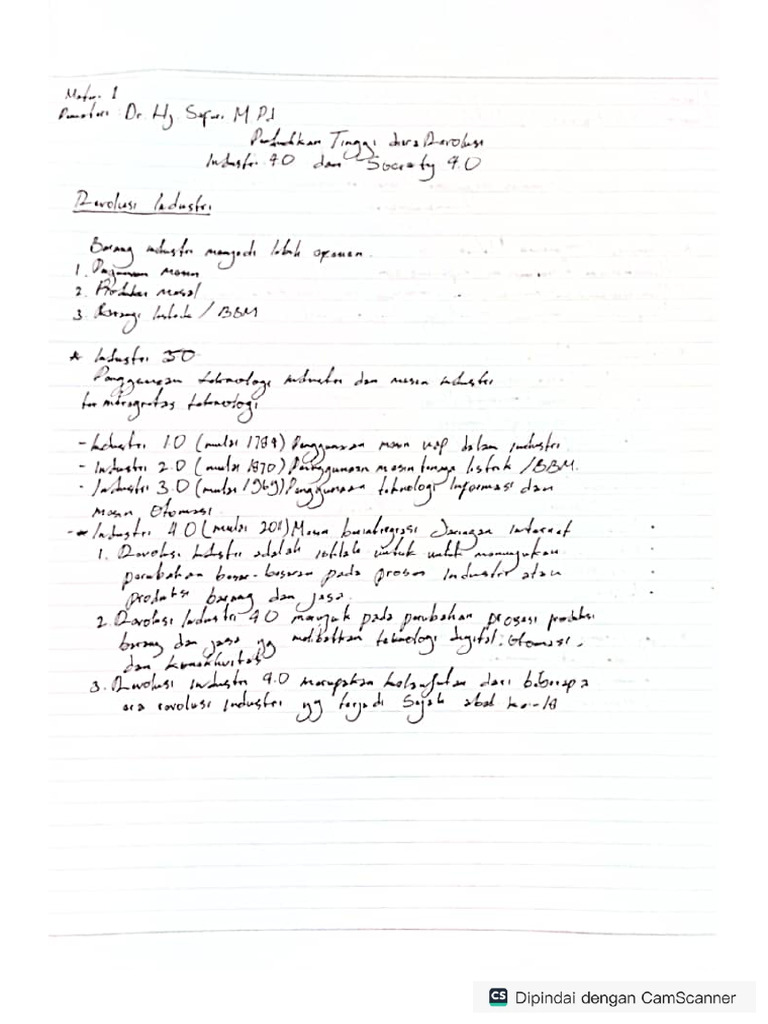 Materi 1
Pemateri : Dr. Hj. Safur. M Pd
Pendidikan Tinggi diera Revolusi
Industri 4.0 dan Society 4.0
Revolusi Industri
Barang industri menjadi lebih
1. Penggunaan Mesin
2. Produksi Masal
3. Energi listrik / BBM
* Industri 5.0
Penggunaan teknologi industri dan mesin industri
teknologi
- Industri 1.0 (mulai 1784) Penggunaan mesin uap dalam industri
- Industri 2.0 (mulai 1870) Penggunaan mesin tenaga listrik / BBM.
- Industri 3.0 (mulai 1969) Penggunaan teknologi Informasi dan
Mesin Otomasi
- * Industri 4.0 (mulai 2011) Mesin berintegrasi Jaringan Internet
1. Revolusi Industri adalah istilah untuk untuk menunjukan
perubahan besar-besaran pada proses Industri atau
produksi barang dan jasa.
2. Revolusi Industri 4.0 merujuk pada perubahan prosesi produksi
barang dan jasa yg melibatkan teknologi digital, Otomasi,
dan konektivitas
3. Revolusi industri 4.0 merupakan kelanjutan dari beberapa
era revolusi Industri yg terjadi Sejak abad ke-18
CS Dipindai dengan CamScanner